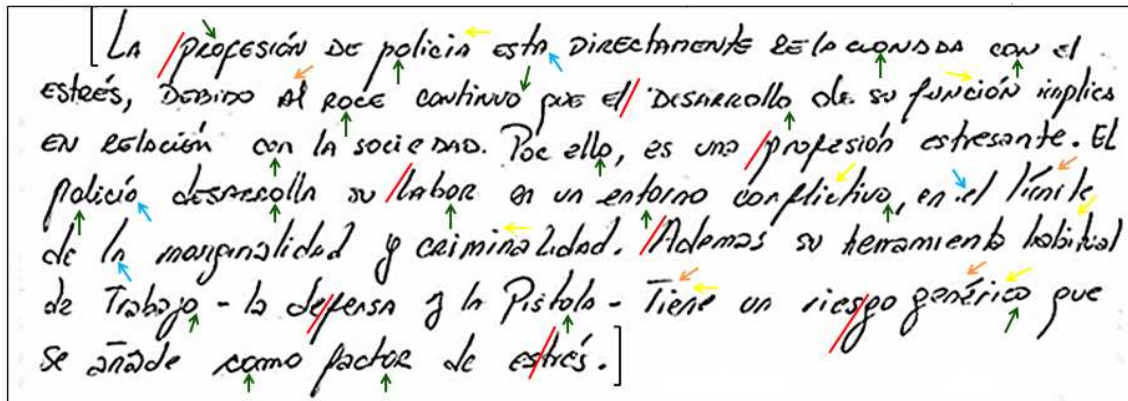 [LA PROFESIÓN DE policia esta DIRECTAMENTE RELACIONADA con el
estrés, DEBIDO Al ROCE continuo que el DESARROLLO de su función implica
EN RELACIÓN con la SOCIEDAD. Por ello, es una profesión estresante. El
policía desarrolla su labor en un entorno conflictivo, en el límite
de la marginalidad y criminalidad. Además su herramienta habitual
de Trabajo - la defensa y la Pistola - Tiene un riesgo genérico que
se añade como factor de estrés.]